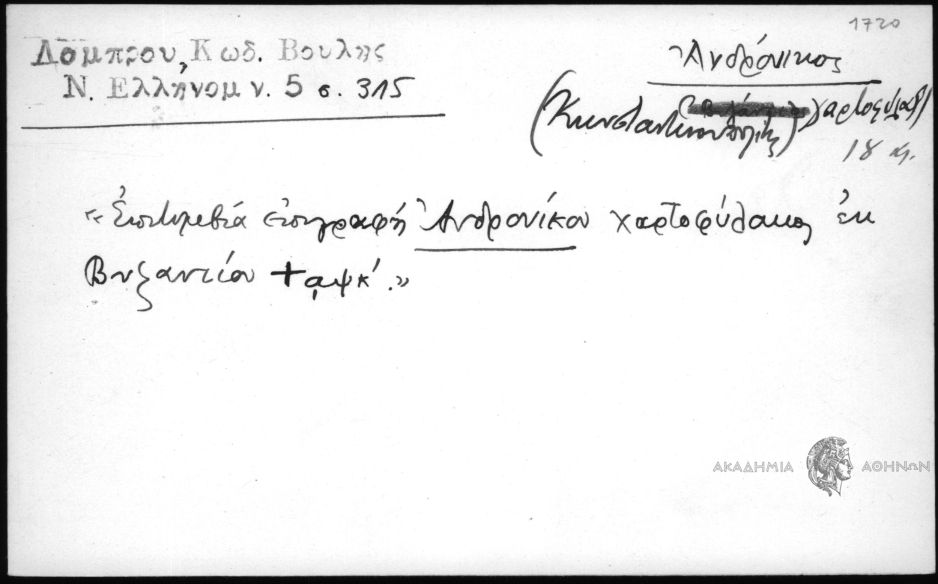 1720
Λαμπρου, Κωδ. Βουλης
Ν. Ελληνομν. 5 σ. 315
Ἀνδρόνικος
(Κωνσταντινουπολίτης) χαρτοφύλαξ
18 αι.
«Ἐπιτυμβία ἐπιγραφή Ἀνδρονίκου χαρτοφύλακος ἐκ
Βυζαντίου + αψκ΄.»
ΑΚΑΔΗΜΙΑ ΑΘΗΝΩΝ